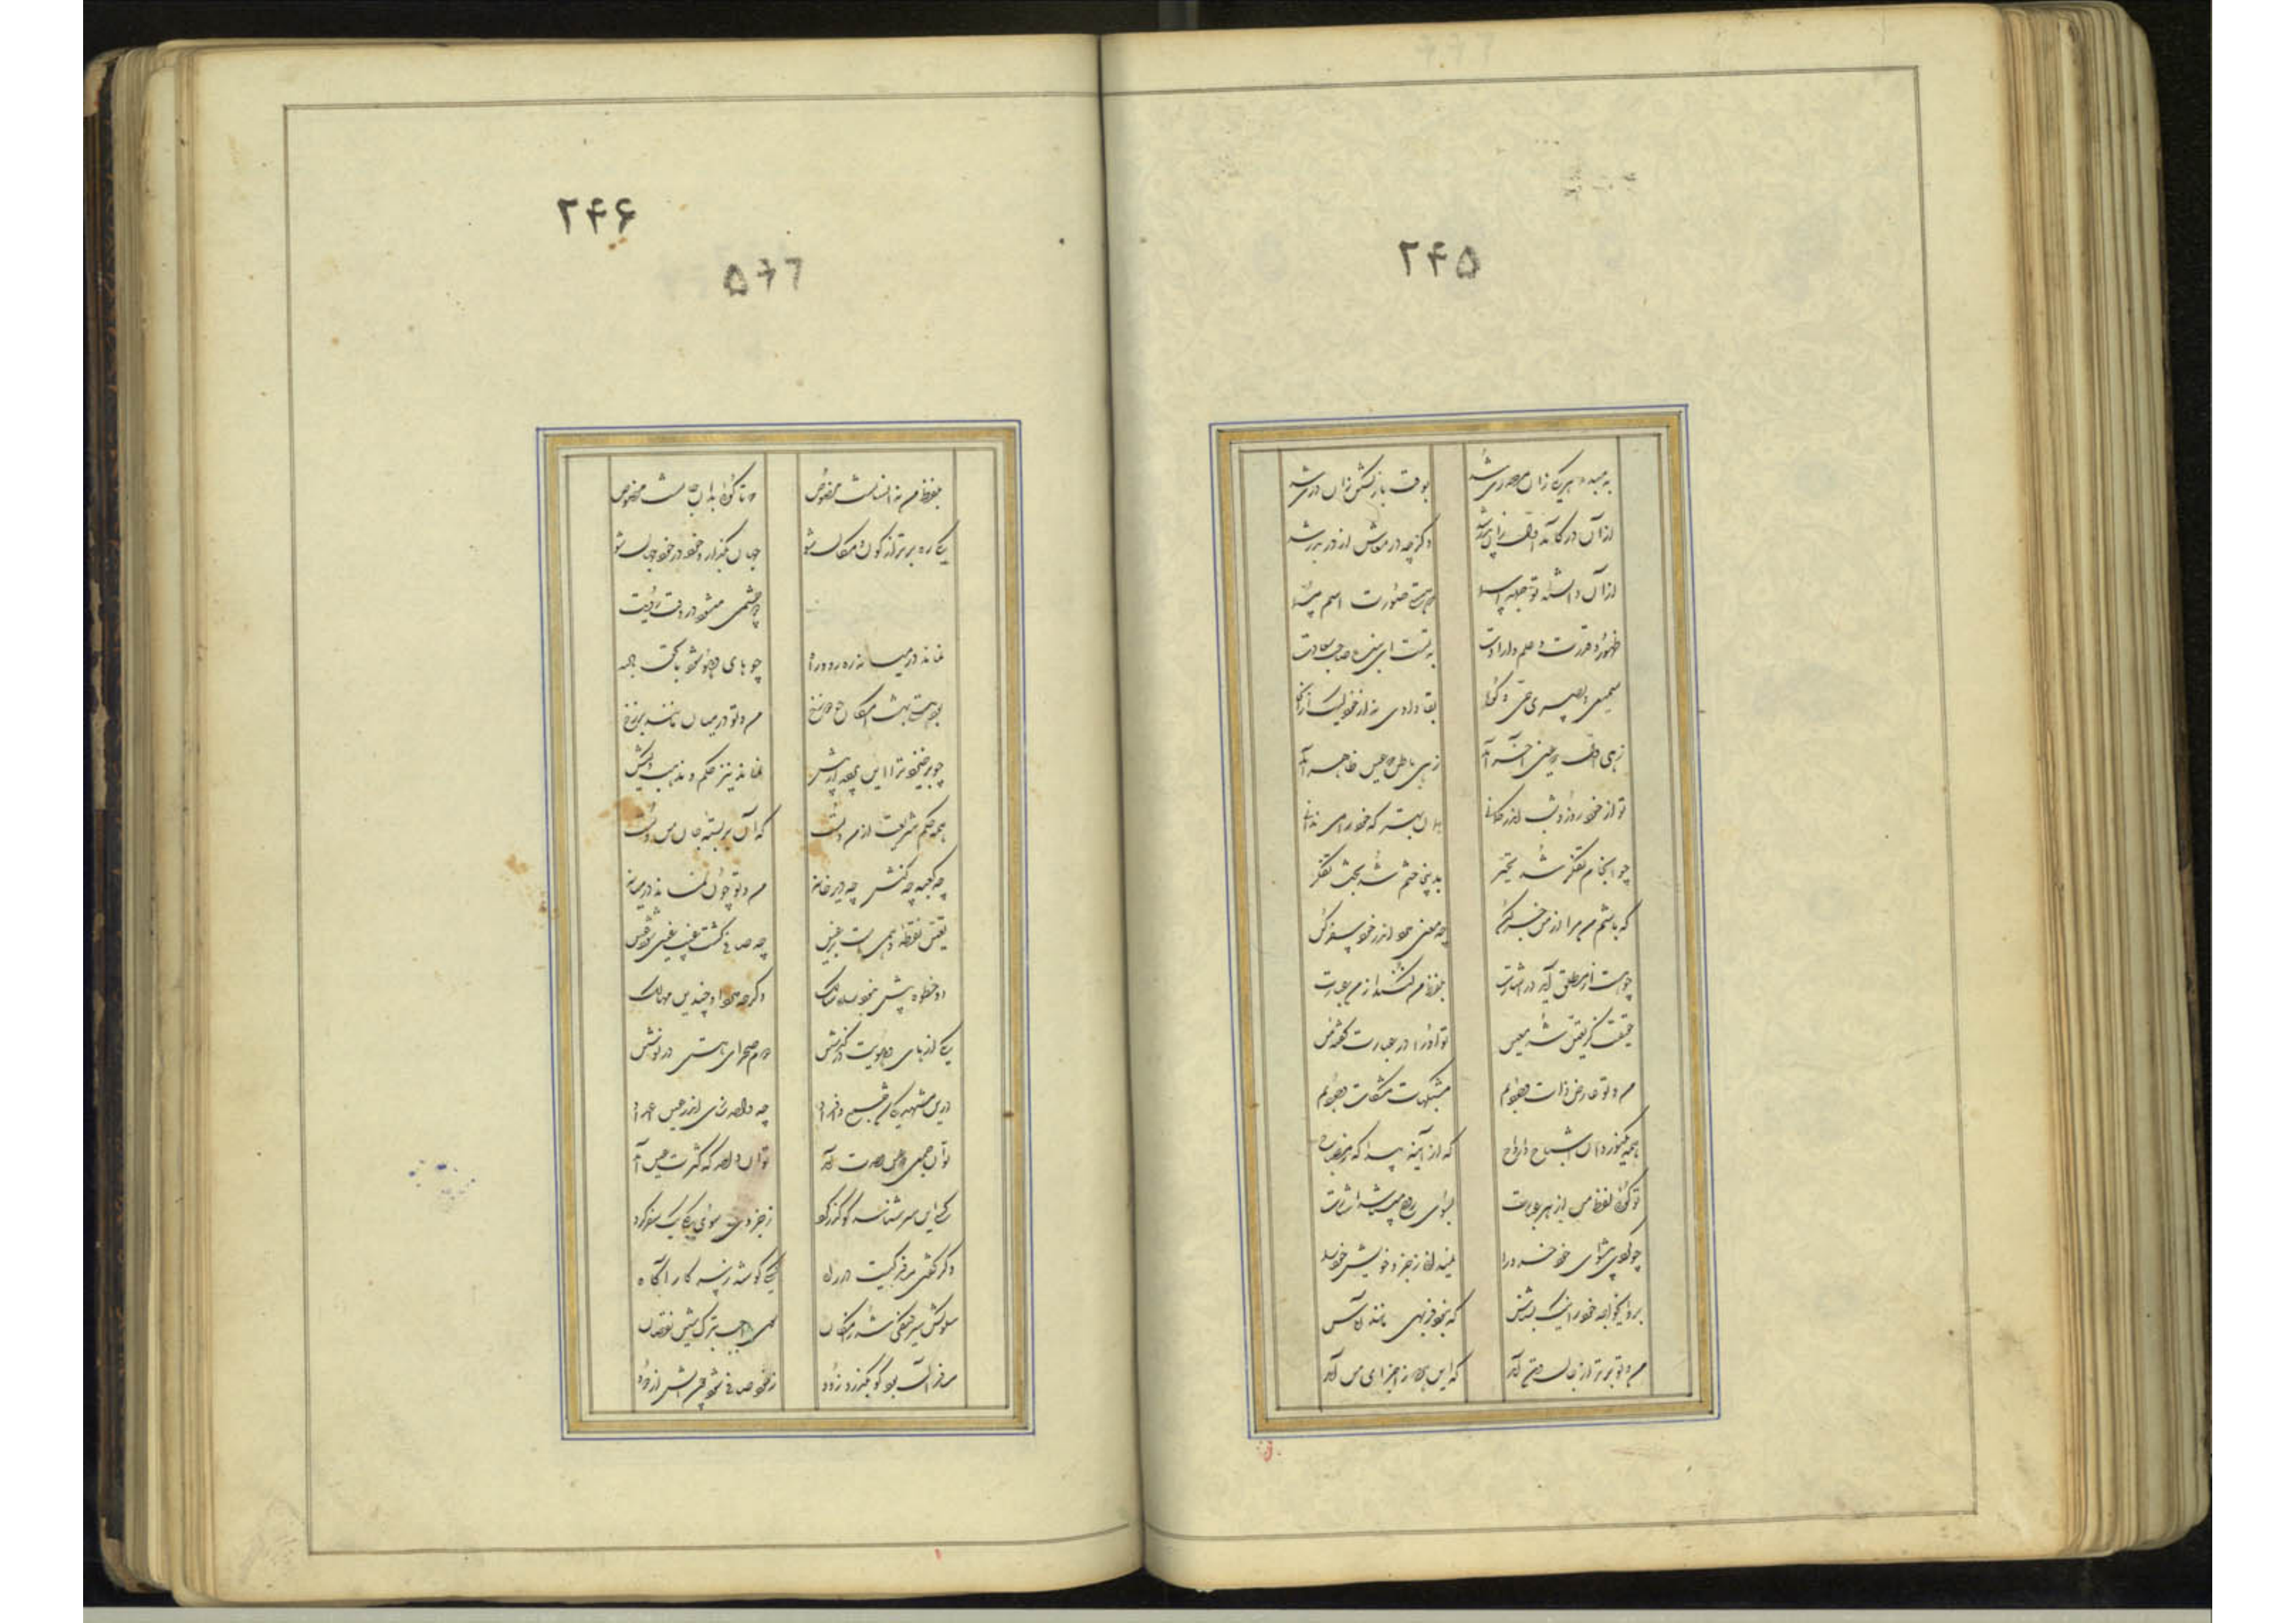 ۲۴۵
به مبدء هر یکی زان مصدری شد بوقت بازگشتن زان دری شد
از آن در کآمد اول زان بدر شد وگرچه در معاش از در بدر شد
از آن دانسته تو جمله اسما
ظهور و قدرت و علم و ارادت به تست ای بنده صاحب سعادت
سمیعی و بصیری حی و گویا بقا داری نه از خود لیک از آنجا
زهی اول که عین آخر آمد زهی باطن که عین ظاهر آمد
تو از خود روز و شب اندر گمانی همان بهتر که خود را می ندانی
چو انجام تفکر شد تحیر بدینجا ختم شد بحث تفکر
که باشم من مرا از من خبر کن چه معنی دارد اندر خود سفر کن
چو هست مطلق آید در اشارت بلفظ من کنند از وی عبارت
حقیقت کز تعین شد معین تو او را در عبارت گفته من
من و تو عارض ذات وجودیم مشبکهای مشکات وجودیم
همه یک نور دان اشباح و ارواح که از آینه پیدا که ز مصباح
تو گوئی لفظ من در هر عبارت بسوی روح میباشد اشارت
چو کردی پیشوای خود خرد را نمیدانی ز جزو خویش خود را
برو ای خواجه خود را نیک بشناس که نبود فربهی مانند آماس
من و تو برتر از جان و تن آمد که این هر دو ز اجزای من آمد
۲۴۶
بلفظ من نه انسانست مخصوص که تا گوئی بدان جانست مخصوص
یکی ره برتر از کون و مکان شو جهان بگذار و خود در خود جهان شو
دو چشمی میشود در وقت رؤیت
نماند در میانه ره رو و راه چو های هو شود ملحق بالله
بود هستی بهشت امکان چو دوزخ من و تو در میان مانند برزخ
چو برخیزد ترا این پرده از پیش نماند نیز حکم و مذهب و کیش
همه حکم شریعت از من و تست که آن بربسته جان و تن تست
من و تو چون نماند در میانه چه کعبه چه کنش چه دیر خانه
تعین نقطه وهمیست بر عین چه صافی گشت غین تو شود عین
دو خطوه بیش نبود راه سالک وگرچه دارد او چندین مهالک
یک از های هویت درگذشتن دوم صحرای هستی در نوشتن
درین مشهد یکی شد جمع و افراد چه واحد ساری اندر عین اعداد
تو آن جمعی که عین وحدت آمد تو آن واحد که کثرت عین آمد
کسی این سر شناسد کو گذر کرد ز جزوی سوی کلی یک سفر کرد
وگر گفتی مسافر کیست در راه کسی کو شد ز سر کار آگاه
سلوکش سیر کشفی شد ز امکان سوی واجب بترک شین و نقصان
مسافر آن بود کو بگذرد زود ز خود صافی شود چون آتش از دود